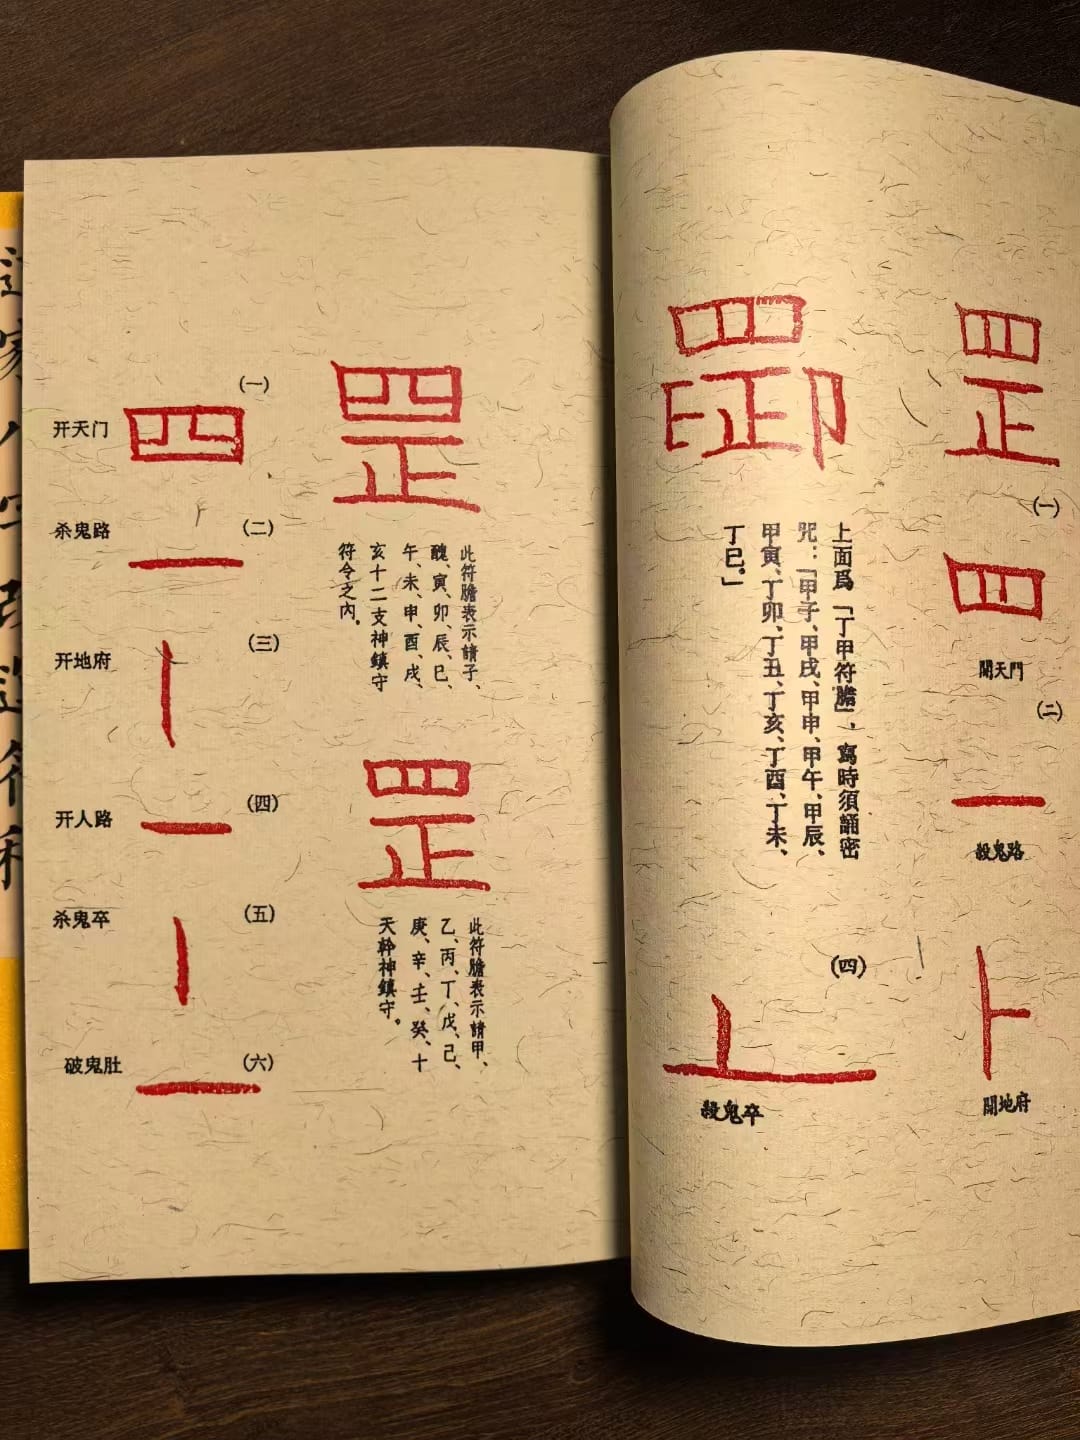 罡
此符膽表示請子、
醜、寅、卯、辰、巳、
午、未、申、酉、戌、
亥十二支神鎮守
符令之內。
罡
此符膽表示請甲、
乙、丙、丁、戊、己、
庚、辛、壬、癸、十
天幹神鎮守。
(一)
开天门
四
(二)
杀鬼路
一
(三)
开地府
丨
(四)
开人路
一
(五)
杀鬼卒
丨
(六)
破鬼肚
一
罡
(一)
四
開天門
(二)
一
殺鬼路
⺊
開地府
上面爲「丁甲符膽」,寫時須誦密
咒:「甲子、甲戌、甲申、甲午、甲辰、
甲寅、丁卯、丁丑、丁亥、丁酉、丁未、
丁巳。」
(四)
殺鬼卒